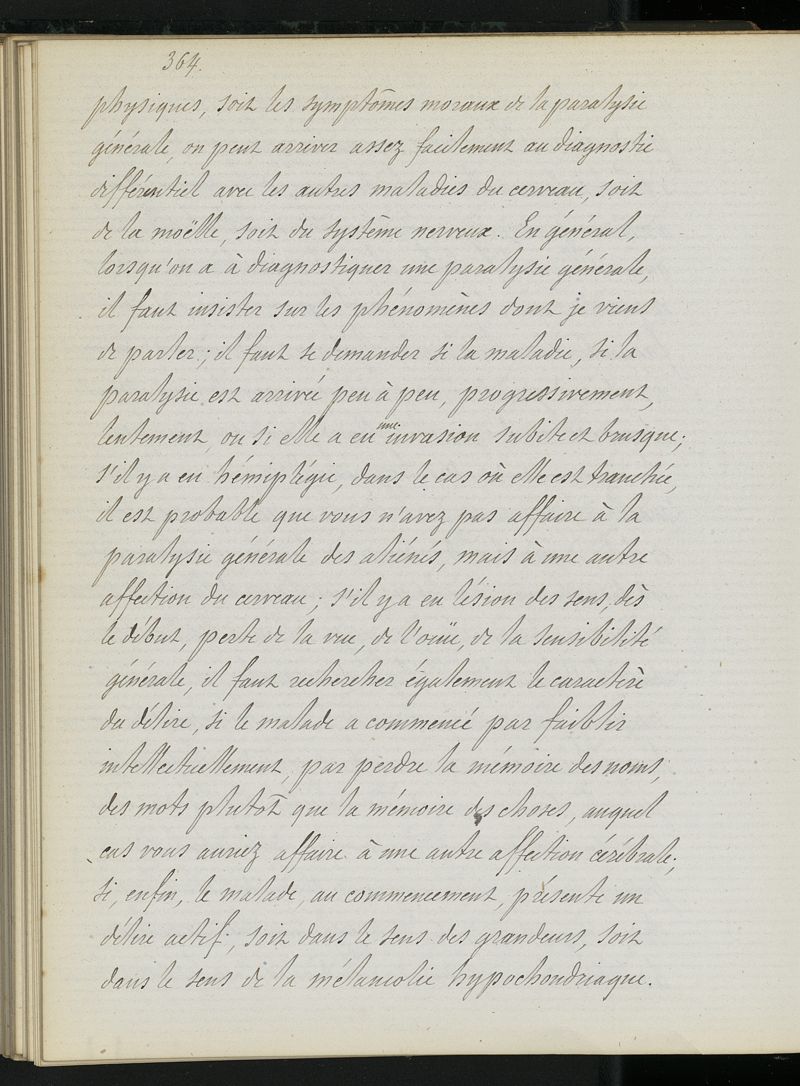 364.
physiques, soit les symptômes moraux de la paralysie
générale, on peut arriver assez facilement au diagnostic
différentiel avec les autres maladies du cerveau, soit
de la moëlle, soit du système nerveux. En général,
lorsqu'on a à diagnostiquer une paralysie générale,
il faut insister sur les phénomènes dont je viens
de parler; il faut se demander si la maladie, si la
paralysie est arrivée peu à peu, progressivement,
lentement, ou si elle a eu une invasion subite et brusque;
s'il y a eu hémiplégie, dans le cas où elle est tranchée,
il est probable que vous n'avez pas affaire à la
paralysie générale des aliénés, mais à une autre
affection du cerveau; s'il y a eu lésion des sens, dès
le début, perte de la vue, de l'ouïe, de la sensibilité
générale, il faut rechercher également le caractère
du délire, si le malade a commencé par faiblir
intellectuellement, par perdre la mémoire des noms,
des mots plutôt que la mémoire des choses, auquel
cas vous auriez affaire à une autre affection cérébrale;
si, enfin, le malade, au commencement, présente un
délire actif, soit dans le sens des grandeurs, soit
dans le sens de la mélancolie hypochondriaque.